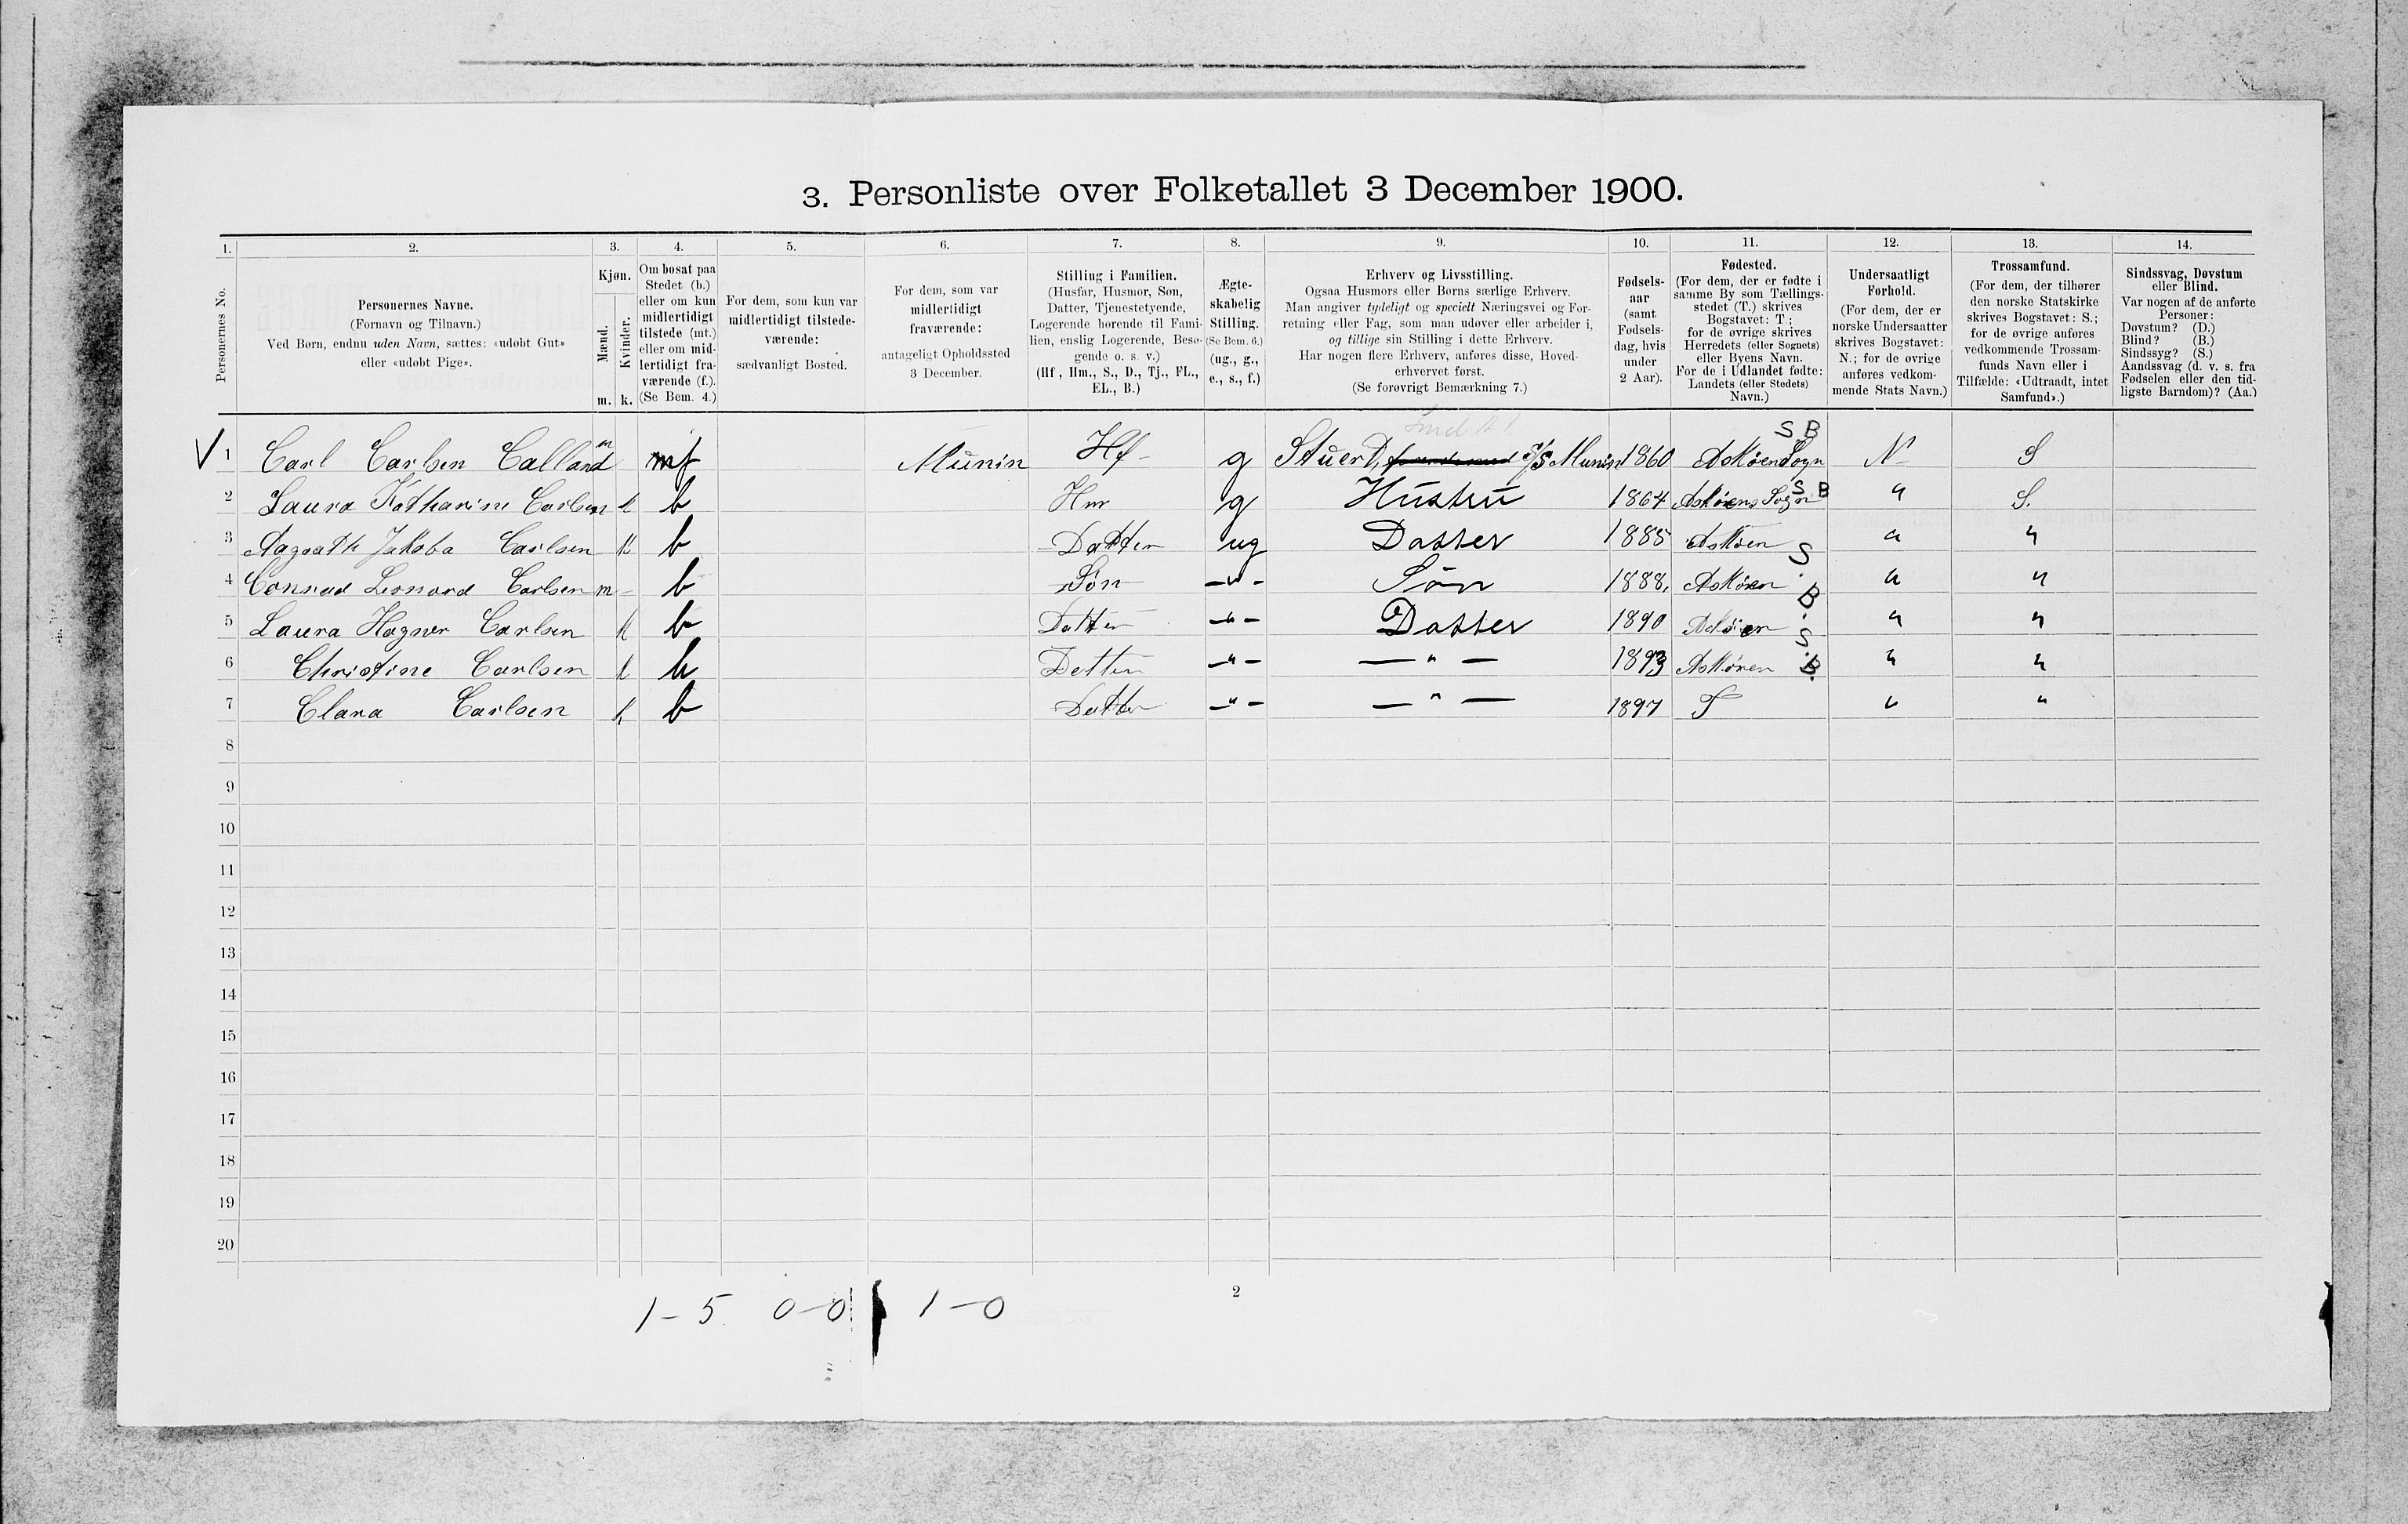 3. Personliste over Folketallet 3 December 1900.
1. 2. 3. 4. 5. 6. 7. 8. 9. 10. 11. 12. 13. 14.
Personernes No.
Personernes Navne.
(Fornavn og Tilnavn.)
Ved Børn, endnu uden Navn, sættes: «udøbt Gut»
eller «udøbt Pige».
Kjøn.
Mænd.
Kvinder.
m. k.
Om bosat paa
Stedet (b.)
eller om kun
midlertidigt
tilstede (mt.)
eller om mid-
lertidigt fra-
værende (f.).
(Se Bem. 4.)
For dem, som kun var
midlertidigt tilstede-
værende:
sædvanligt Bosted.
For dem, som var
midlertidigt
fraværende:
antageligt Opholdssted
3 December.
Stilling i Familien.
(Husfar, Husmor, Søn,
Datter, Tjenestetyende,
Logerende hørende til Fami-
lien, enslig Logerende, Besø-
gende o. s. v.)
(Hf., Hm., S., D., Tj., FL.,
EL., B.)
Ægte-
skabelig
Stilling.
(Se Bem. 6.)
(ug., g.,
e., s., f.)
Erhverv og Livsstilling.
Ogsaa Husmors eller Børns særlige Erhverv.
Man angiver tydeligt og specielt Næringsvei og For-
retning eller Fag, som man udøver eller arbeider i,
og tillige sin Stilling i dette Erhverv.
Har nogen flere Erhverv, anføres disse, Hoved-
erhvervet først.
(Se forøvrigt Bemærkning 7.)
Fødsels-
aar
(samt
Fødsels-
dag, hvis
under
2 Aar).
Fødested.
(For dem, der er fødte i
samme By som Tællings-
stedet (T.) skrives
Bogstavet: T.;
for de øvrige skrives
Herredets (eller Sognets)
eller Byens Navn.
For de i Udlandet fødte:
Landets (eller Stedets)
Navn.)
Undersaatligt
Forhold.
(For dem, der er
norske Undersaatter
skrives Bogstavet:
N.; for de øvrige
anføres vedkom-
mende Stats Navn.)
Trossamfund.
(For dem, der tilhører
den norske Statskirke
skrives Bogstavet: S.;
for de øvrige anføres
vedkommende Trossam-
funds Navn eller i
Tilfælde: «Udtraadt, intet
Samfund».)
Sindssvag, Døvstum
eller Blind.
Var nogen af de anførte
Personer:
Døvstum? (D.)
Blind? (B.)
Sindssyg? (S.)
Aandssvag (d. v. s. fra
Fødselen eller den tid-
ligste Barndom)? (Aa.)
V 1 Carl Carlsen Calland m mf Munin Hf g Stuert, S/S Munin 1860 Askøens Sogn S B N S
2 Laura Katharine Carlsen k b Hm g Hustru 1864 Askøens Sogn S B " S.
3 Aagoath Jakoba Carlsen k b Datter ug Datter 1885 Askøen " "
4 Conrad Leonard Carlsen m b Søn - " - Søn 1888. Askøen S. B. " "
5 Laura Hagner Carlsen k b Datter - " - Datter 1890 Askøen " "
6 Christine Carlsen k b Datter - " - — " — 1893 Askøen S. B. " "
7 Clara Carlsen k b Datter - " - — " — 1897 T " "
8
9
10
11
12
13
14
15
16
17
18
19
20
2
1-5 0-0 1-0